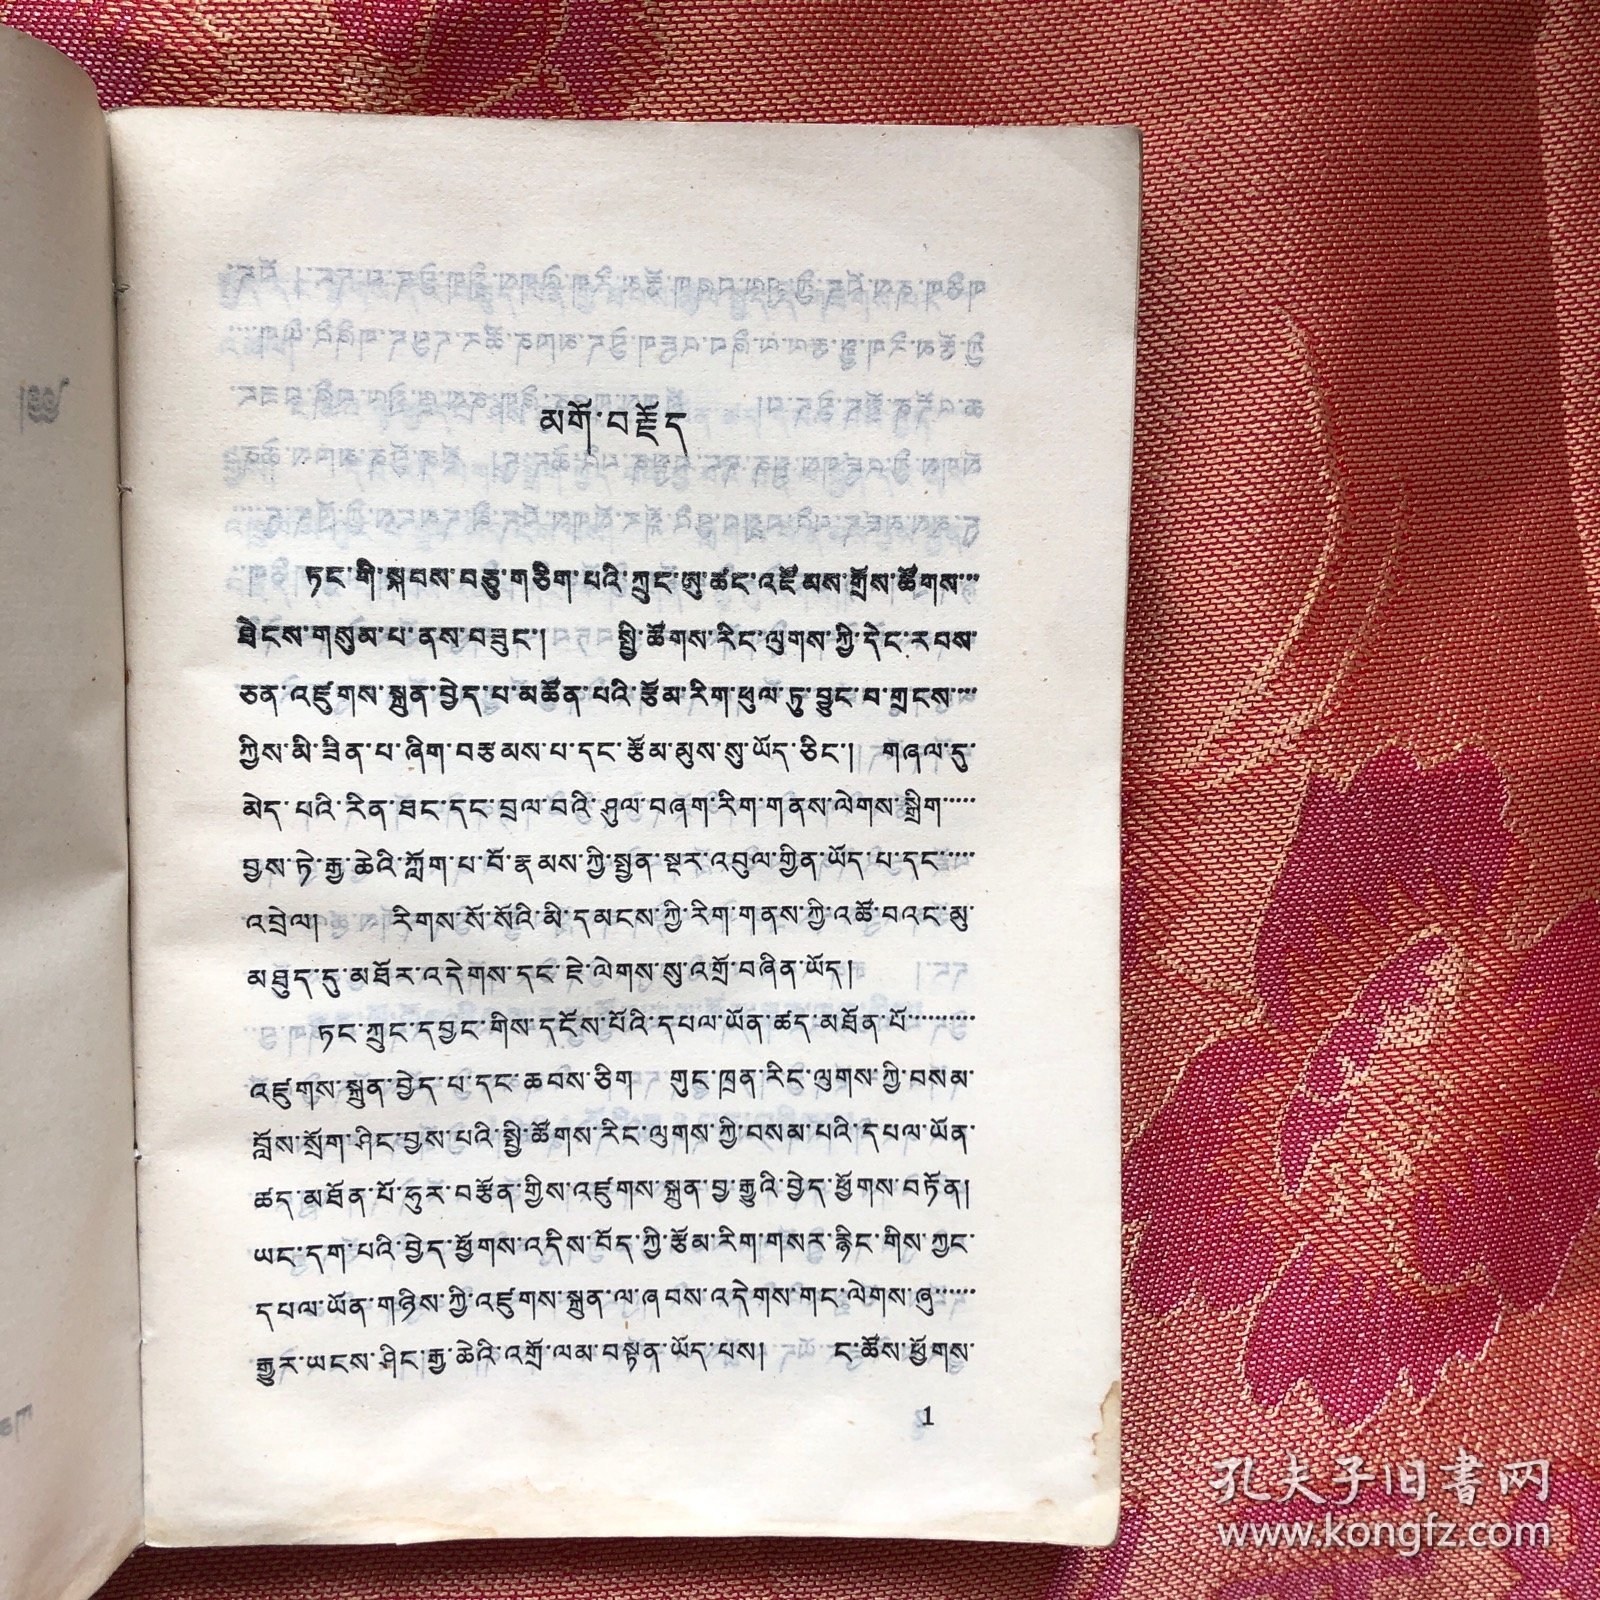 མགོ་བརྗོད
ཏང་གི་སྐབས་བཅུ་གཅིག་པའི་ཀྲུང་ཨུ་ཚང་འཛོམས་གྲོས་ཚོགས་་་
ཐེངས་གསུམ་པ་ནས་བཟུང་། སྤྱི་ཚོགས་རིང་ལུགས་ཀྱི་དེང་རབས་
ཅན་འཛུགས་སྐྲུན་བྱེད་པ་མཚོན་པའི་རྩོམ་རིག་ཕུལ་ཏུ་བྱུང་བ་གྲངས་་་་
ཀྱིས་མི་ཟིན་པ་ཞིག་བརྩམས་པ་དང་རྩོམ་མུས་སུ་ཡོད་ཅིང་། གཞལ་དུ་
མེད་པའི་རིན་ཐང་དང་བྲལ་བའི་ཤུལ་བཞག་རིག་གནས་ལེགས་སྒྲིག་་་་་
བྱས་ཏེ་རྒྱ་ཆེའི་ཀློག་པ་པོ་རྣམས་ཀྱི་སྤྱན་སྔར་འབུལ་གྱིན་ཡོད་པ་དང་་་་་
འབྲེལ། རིགས་སོ་སོའི་མི་དམངས་ཀྱི་རིག་གནས་ཀྱི་འཚོ་བའང་མུ་
མཐུད་དུ་མཐོར་འདེགས་དང་ཇེ་ལེགས་སུ་འགྲོ་བཞིན་ཡོད།
ཏང་ཀྲུང་དབྱང་གིས་དངོས་པོའི་དཔལ་ཡོན་ཚད་མཐོན་པོ་་་་་་་་་
འཛུགས་སྐྲུན་བྱེད་པ་དང་ཆབས་ཅིག གུང་ཁྲན་རིང་ལུགས་ཀྱི་བསམ་
བློས་སྲོག་ཤིང་བྱས་པའི་སྤྱི་ཚོགས་རིང་ལུགས་ཀྱི་བསམ་པའི་དཔལ་ཡོན་
ཚད་མཐོན་པོ་ཧུར་བརྩོན་གྱིས་འཛུགས་སྐྲུན་བྱ་རྒྱུའི་བྱེད་ཕྱོགས་བཏོན།
ཡང་དག་པའི་བྱེད་ཕྱོགས་འདིས་བོད་ཀྱི་རྩོམ་རིག་གསར་རྙིང་གིས་ཀྱང་
དཔལ་ཡོན་གཉིས་ཀྱི་འཛུགས་སྐྲུན་ལ་ཞབས་འདེགས་གང་ལེགས་ཞུ་་་་་་
རྒྱུར་ཡངས་ཤིང་རྒྱ་ཆེའི་འགྲོ་ལམ་བསྟན་ཡོད་པས། ང་ཚོས་ཕྱོགས་
1
孔夫子旧书网
www.kongfz.com